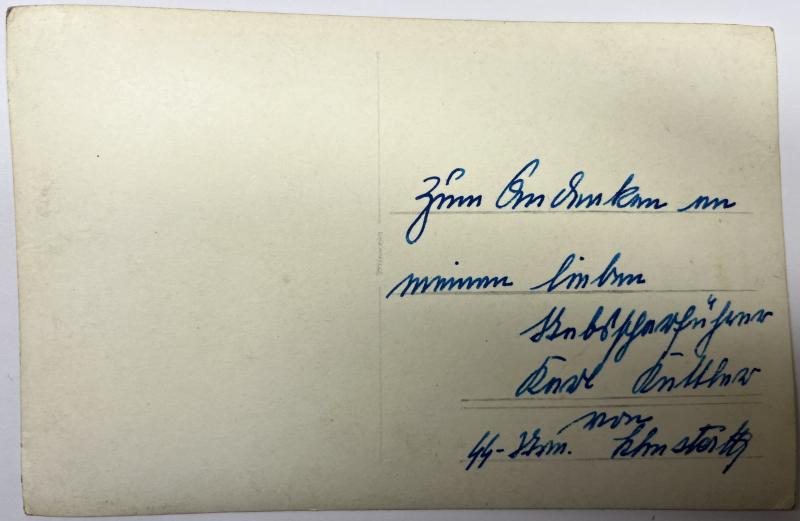 Zum Andenken an
meinen lieben
Stabsscharführer
Karl
von
SS-Strm.